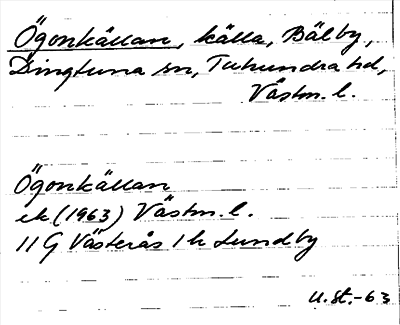 Ögonkällan, källa, Bälby,
Dingtuna sn, Tuhundra hd,
Västm. l.
Ögonkällan
ek (1963) Västm. l.
11 G Västerås 1 h Lundby
U.St.-63